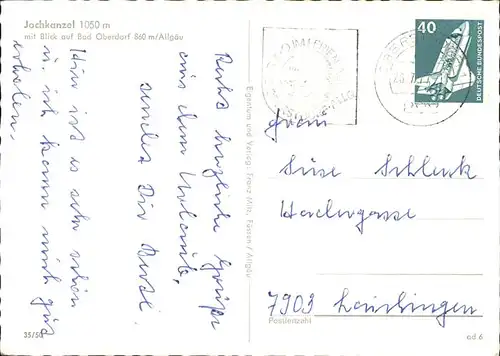 Jochkanzel 1050 m
mit Blick auf Bad Oberdorf 860 m/Allgäu
Recht herzliche Grüße
aus dem Urlaub,
sendet Dir Rosl.
Hier ist es sehr schön
u. ich kann mich gut
erholen.
Eigentum und Verlag: Franz Milz, Füssen / Allgäu
40
DEUTSCHE BUNDESPOST
Süse Schlenk
7903 Laichingen
Postleitzahl
35/50
ad 6